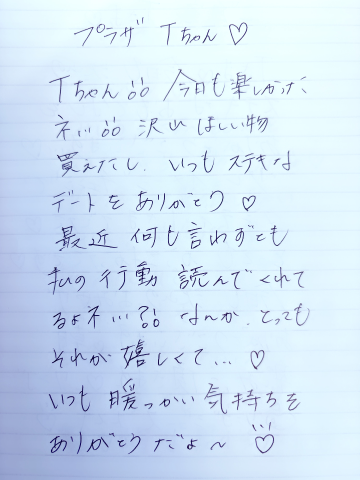 プラザ Tちゃん♡
Tちゃん!! 今日も楽しかった
ネ!!! 沢山 ほしい物
買えたし、いつもステキな
デートを ありがとう♡
最近 何も言わずとも
私の行動 読んでくれて
るよネ…?!! なんか、とっても
それが嬉しくて…♡
いつも 暖っかい気持ちを
ありがとうだよ〜♡